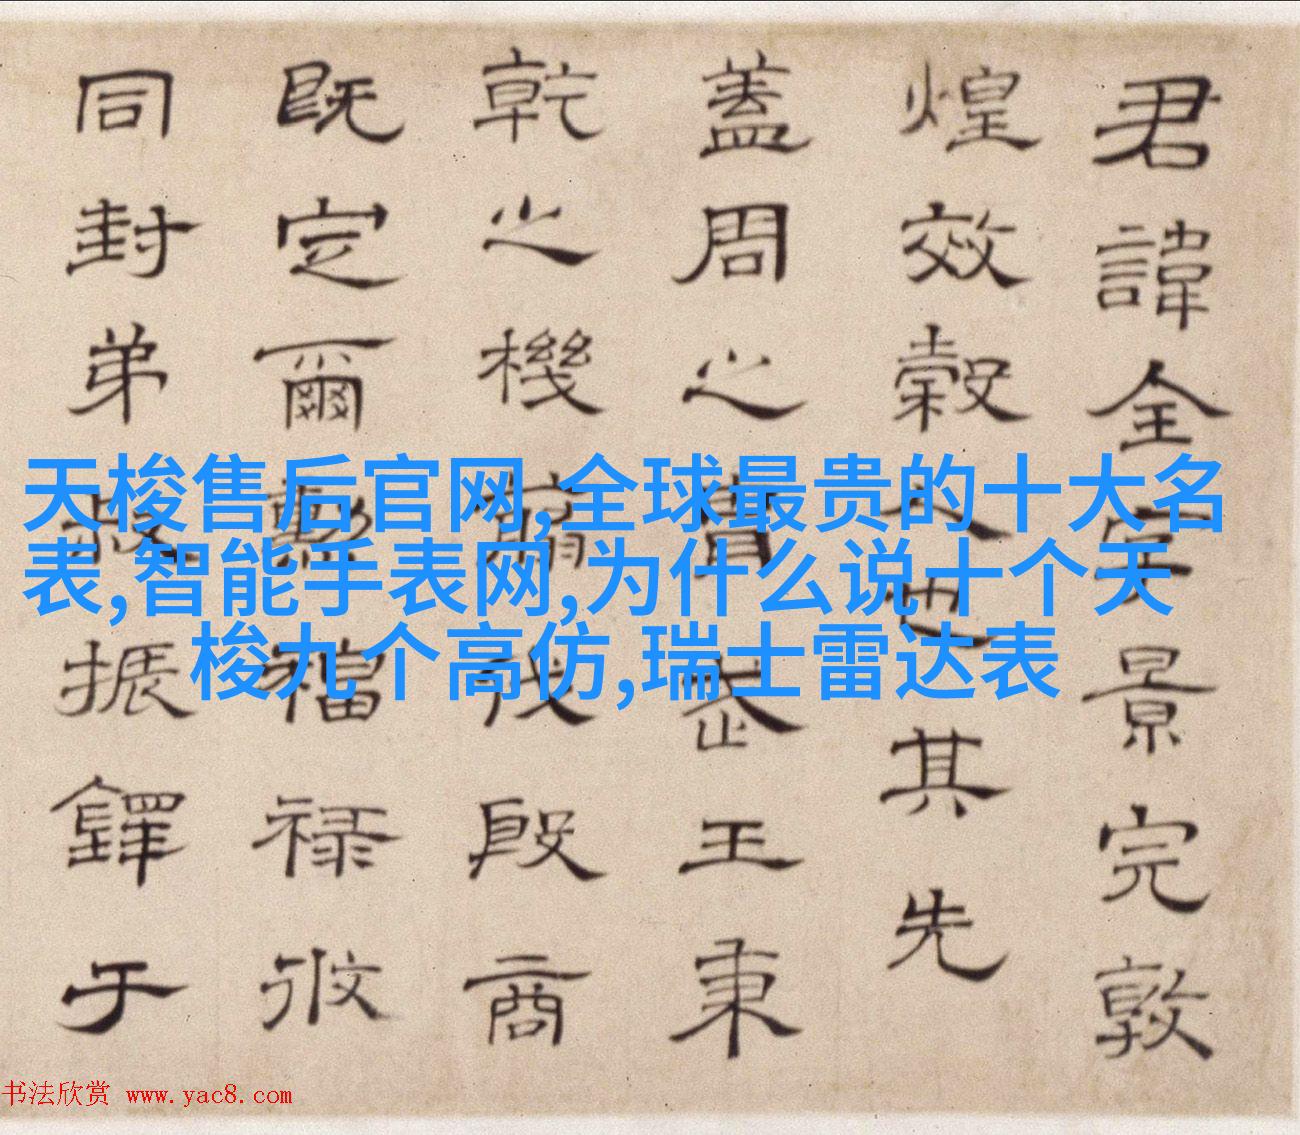 君諱全字景完敦
煌效穀人也其先
蓋周之胄武王秉
乾之機翦伐殷商
既定爾勳福祿攸
同封弟叔振鐸于
天梭售后官网,全球最贵的十大名
表,智能手表网,为什么说十个天
梭九个高仿,瑞士雷达表
书法欣赏 www.yac8.com